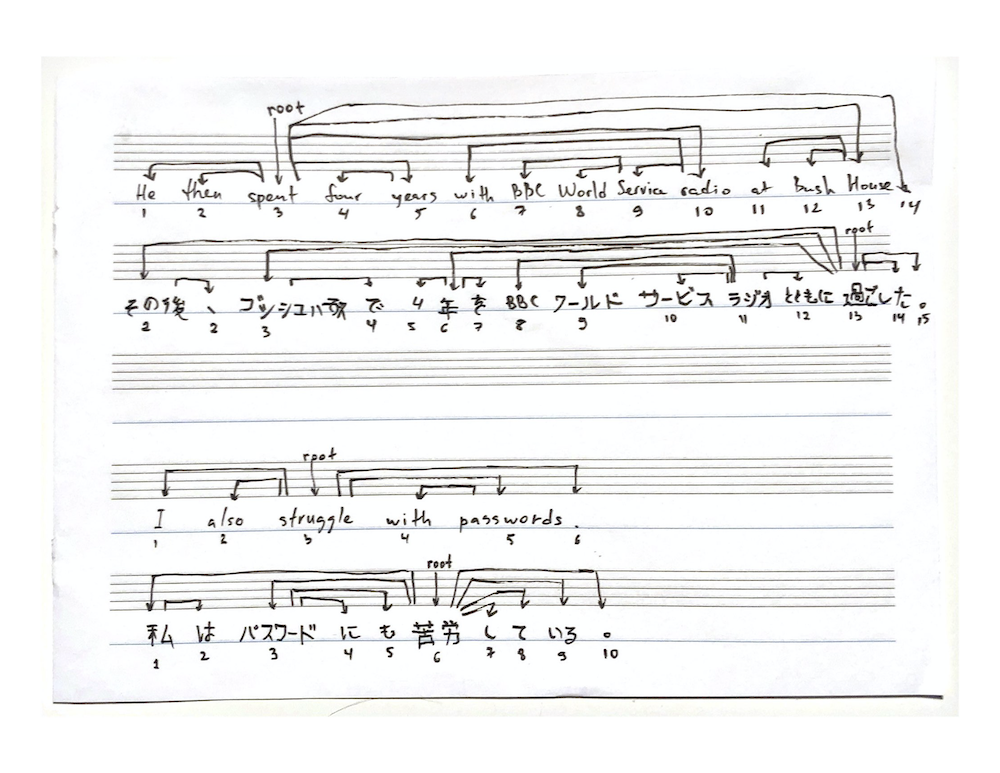 root
He then spent four years with BBC World Service radio at Bush House
1 2 3 4 5 6 7 8 9 10 11 12 13 14
root
その後 、 で 4 年 を BBC ワールド サービス ラジオ とともに 過ごした 。
2 2 3 4 5 6 7 8 9 10 11 12 13 14 15
root
I also struggle with passwords .
1 2 3 4 5 6
root
私 は パスワード に も 苦労 し て いる 。
1 2 3 4 5 6 7 8 9 10